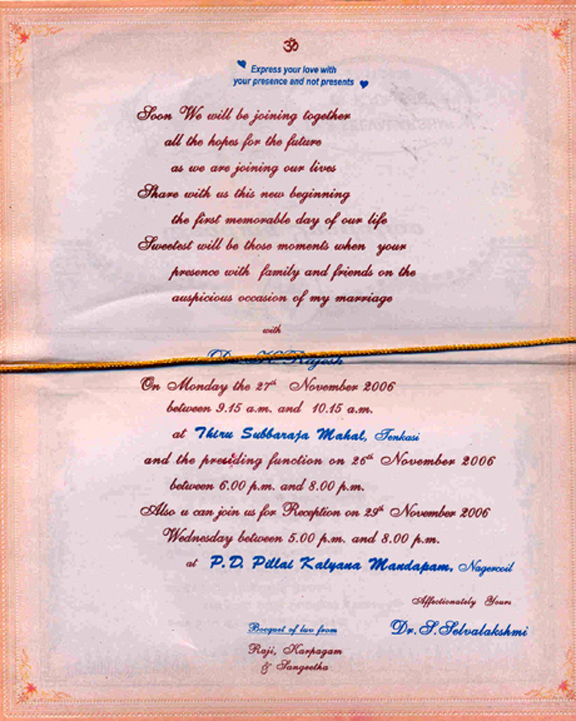 ॐ
Express your love with
your presence and not presents
Soon We will be joining together
all the hopes for the future
as we are joining our lives
Share with us this new beginning
the first memorable day of our life
Sweetest will be those moments when your
presence with family and friends on the
auspicious occasion of my marriage
with
Dr. K. Rajesh
On Monday the 27th November 2006
between 9.15 a.m. and 10.15 a.m.
at Thiru Subbaraja Mahal, Tenkasi
and the presiding function on 26th November 2006
between 6.00 p.m. and 8.00 p.m.
Also u can join us for Reception on 29th November 2006
Wednesday between 5.00 p.m. and 8.00 p.m.
at P.D. Pillai Kalyana Mandapam, Nagercoil
Affectionately Yours
Dr.S.Selvalakshmi
Bocquet of luv from
Raji, Karpagam
& Sangeetha